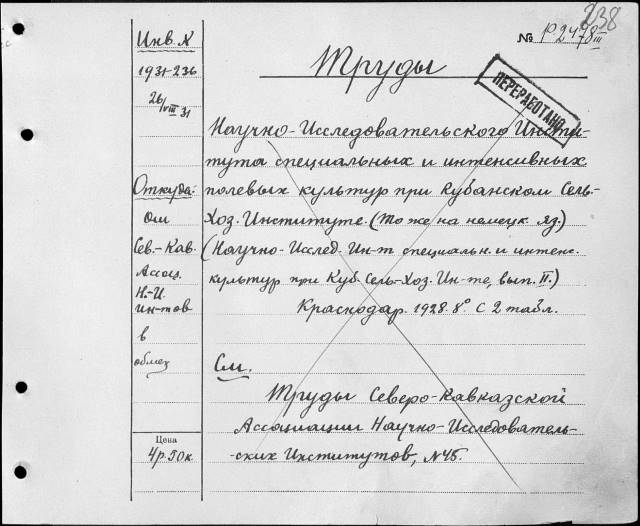 238
№ P2478 III
Инв. N
1931-236
26/VIII 31
Откуда:
от
Сев.-Кав.
Ассоц.
Н.-И.
ин-тов
в
обмен
Цена
4р.50к.
Труды
ПЕРЕРАБОТАНО
Научно-Исследовательского Инсти-
тута специальных и интенсивных
полевых культур при Кубанском Сель-
Хоз. Институте. (То же на немецк. яз.)
(Научно-Исслед. Ин-т специальн. и интенс.
культур при Куб. Сель-Хоз. Ин-те, вып. II.)
Краснодар. 1928. 8°. С 2 табл.
См.
Труды Северо-Кавказской
Ассоциации Научно-Исследователь-
-ских Институтов, N45.